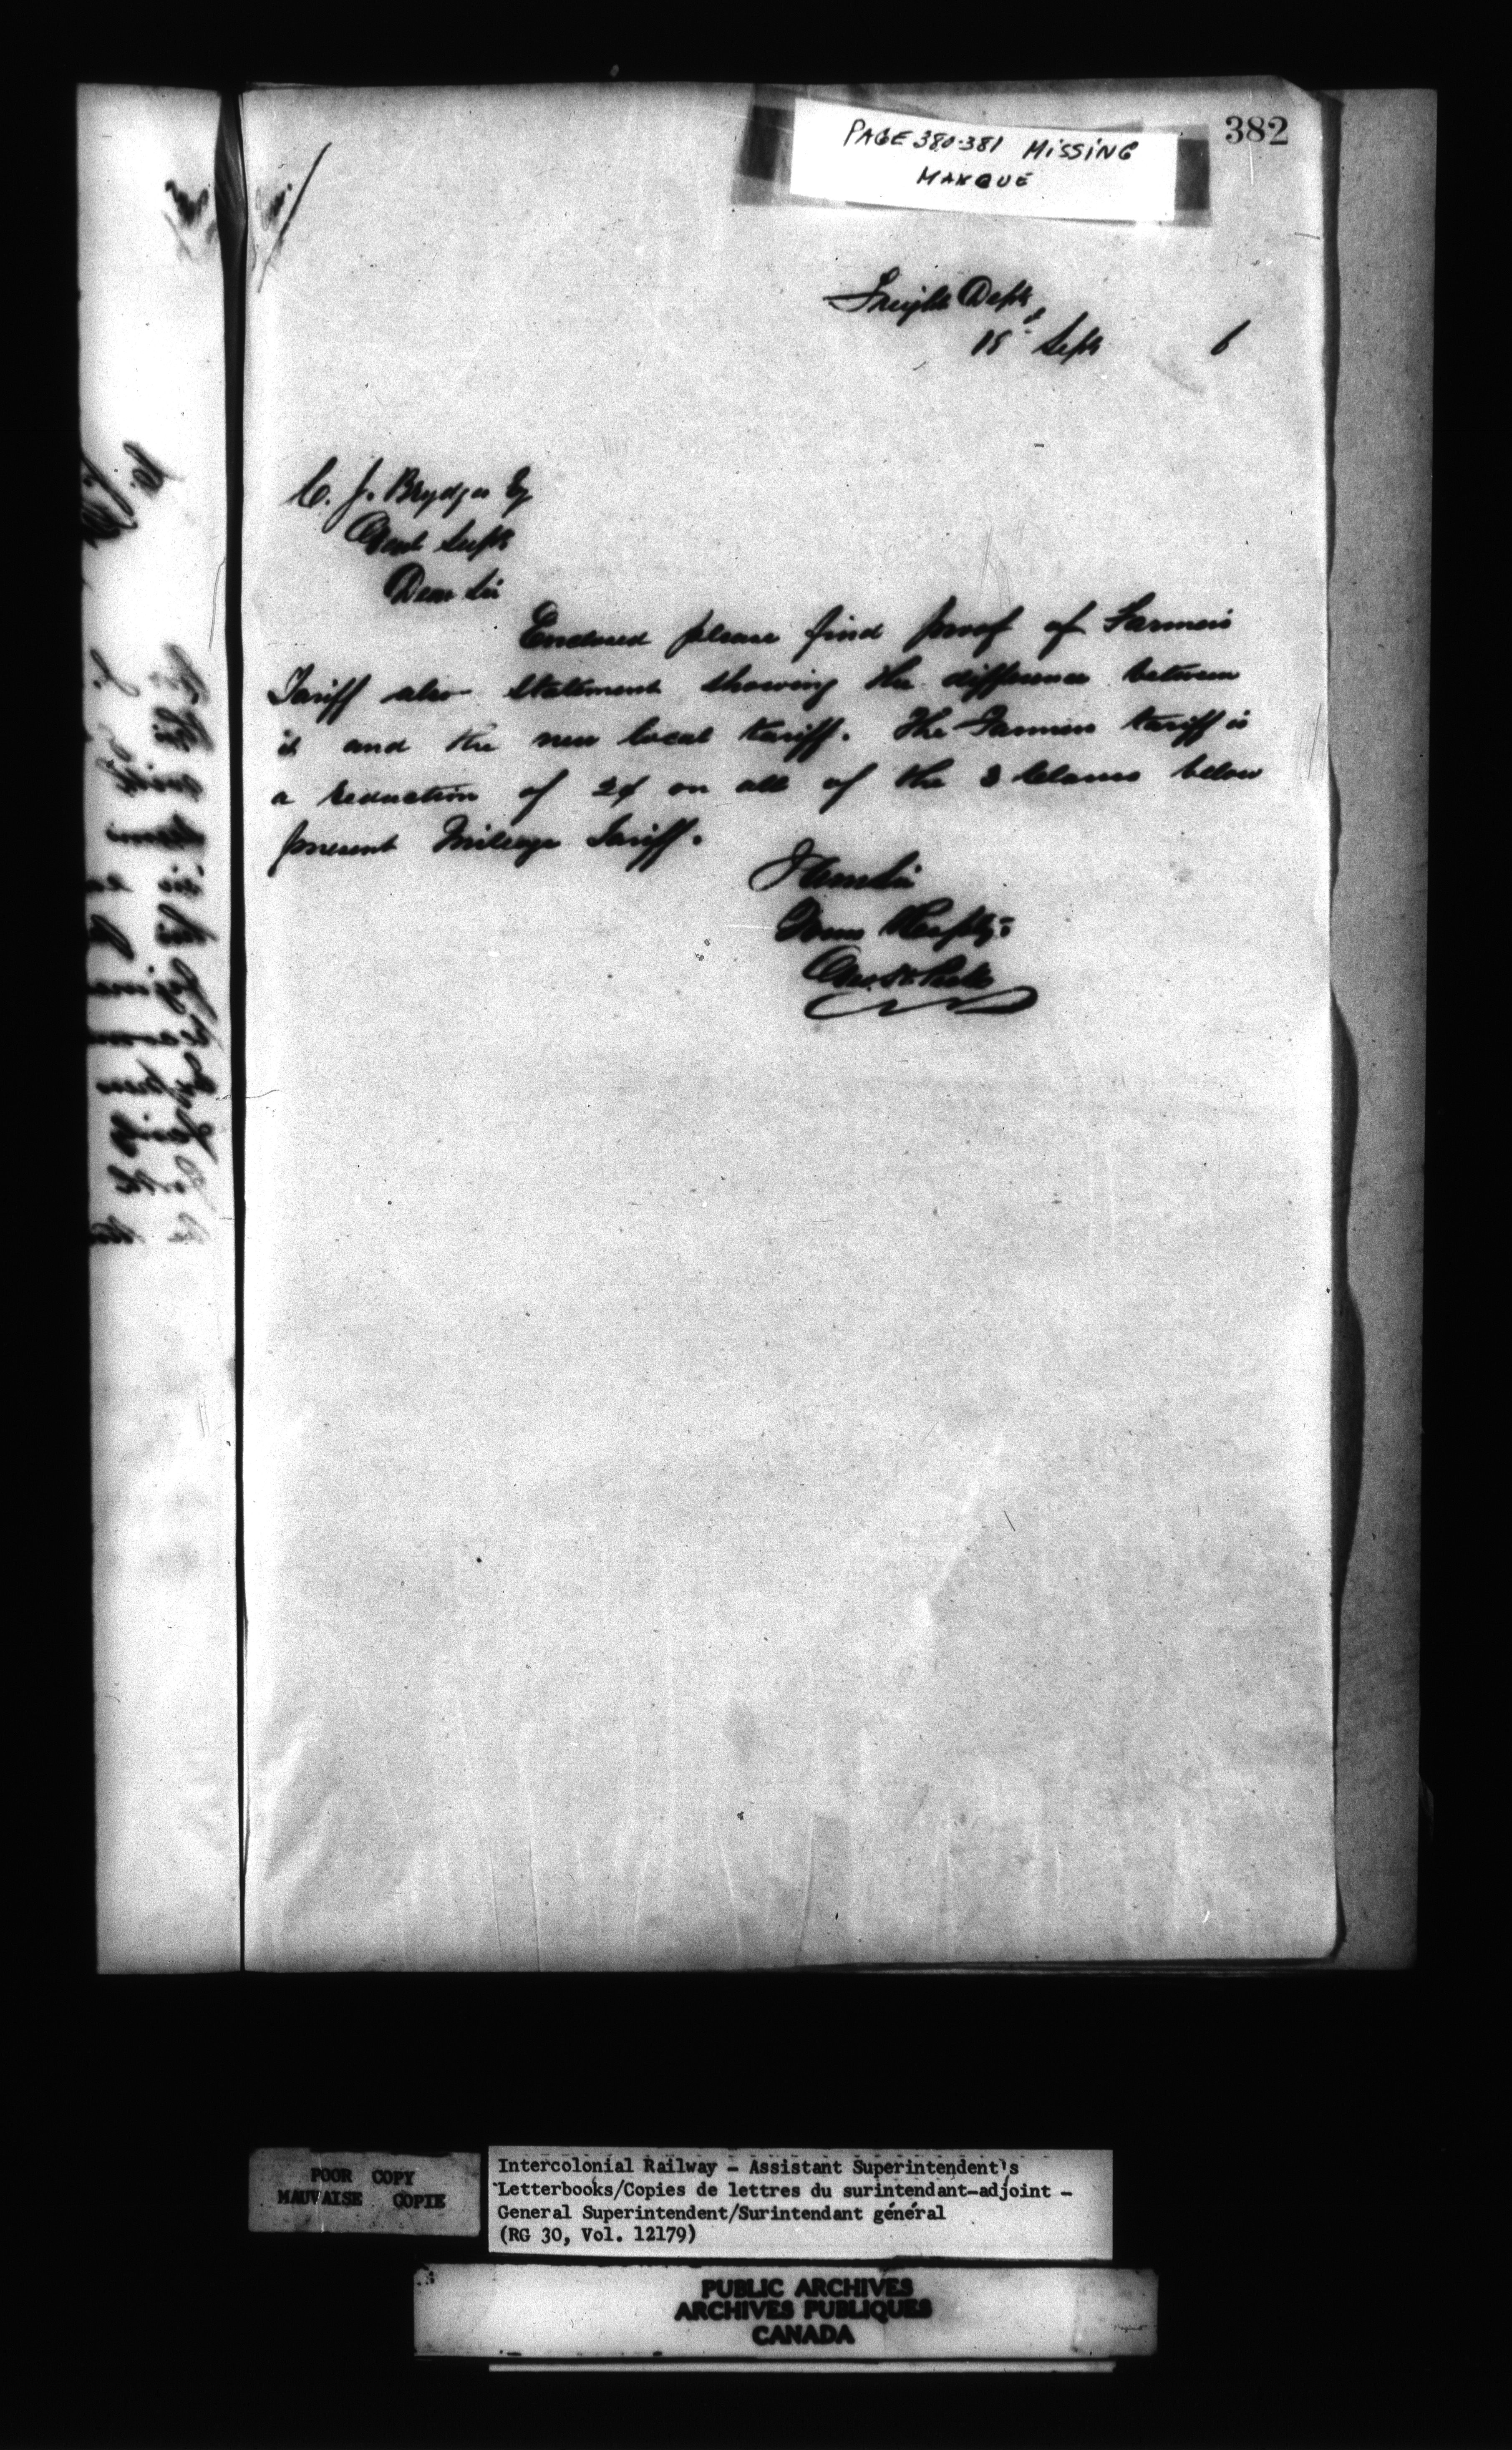 382
PAGE 380-381 MISSING
MANQUE
Freight Dept,
18" Sept 6
C. J. Brydges Esq
Genl Supt
Dear Sir
Enclosed please find proof of Farmers
Tariff also statement showing the difference between
it and the new local tariff. The Farmers tariff is
a reduction of 2¢ on all of the 3 Classes below
present Mileage Tariff.
I am Sir
Yours Respfly:
POOR COPY
MAUVAISE COPIE
Intercolonial Railway - Assistant Superintendent's
Letterbooks/Copies de lettres du surintendant-adjoint -
General Superintendent/Surintendant général
(RG 30, Vol. 12179)
PUBLIC ARCHIVES
ARCHIVES PUBLIQUES
CANADA